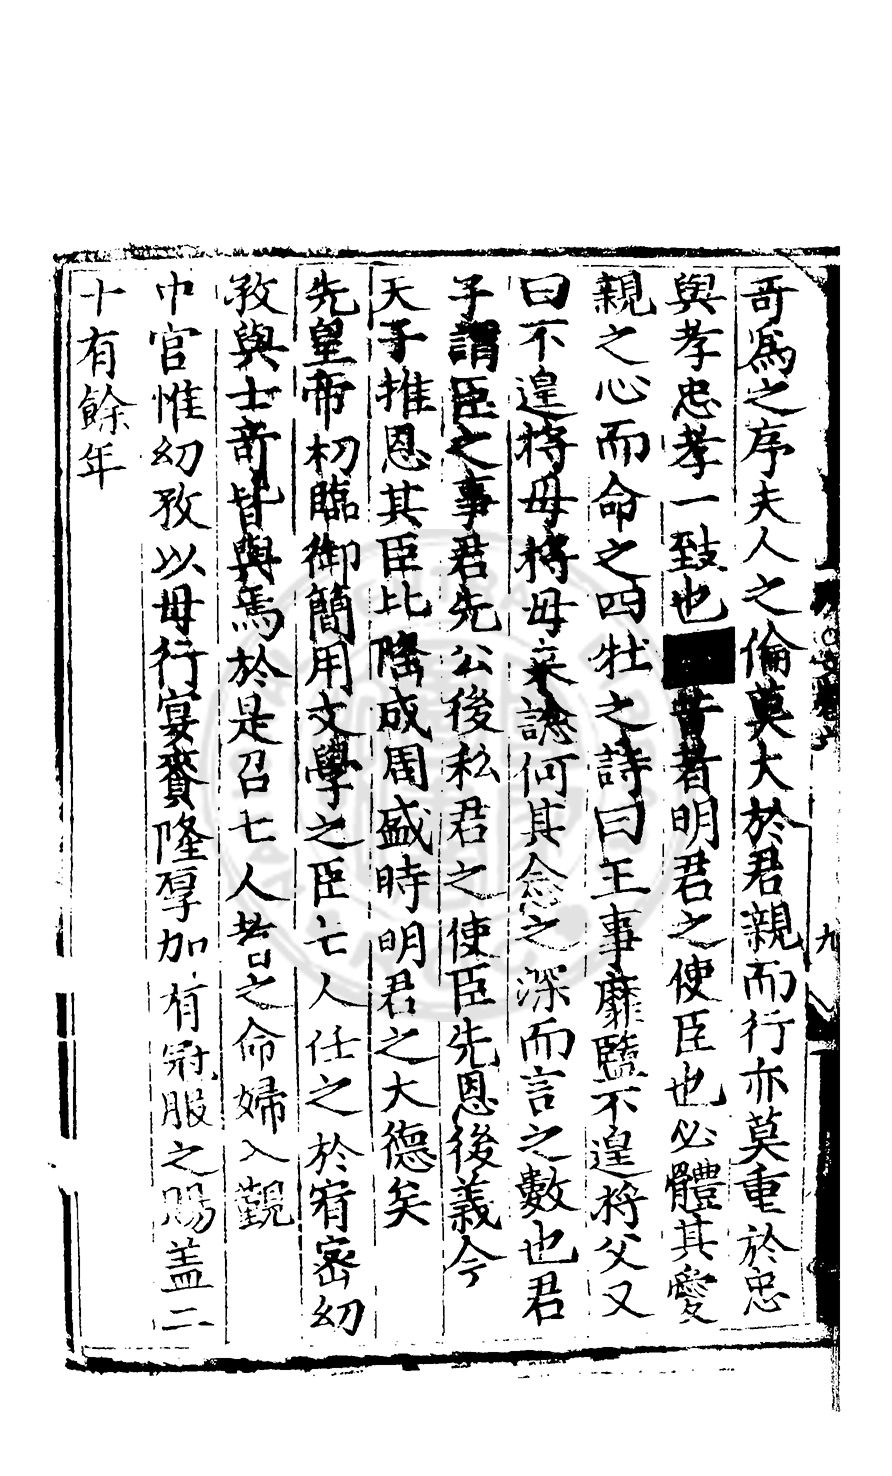 哥為之序夫人之倫莫大於君親而行亦莫重於忠
與孝忠孝一致也昔者明君之使臣也必體其愛
親之心而命之四牡之詩曰王事靡盬不遑將父又
曰不遑將母將母來諗何其念之深而言之數也君
子謂臣之事君先公後私君之使臣先恩後義今
天子推恩其臣比隆成周盛時明君之大德矣
先皇帝初臨御簡用文學之臣七人任之於宥密幼
孜與士奇皆與焉於是召七人者之命婦入觀
中宮惟幼孜以母行宴賚隆厚加有冠服之賜蓋二
十有餘年
九